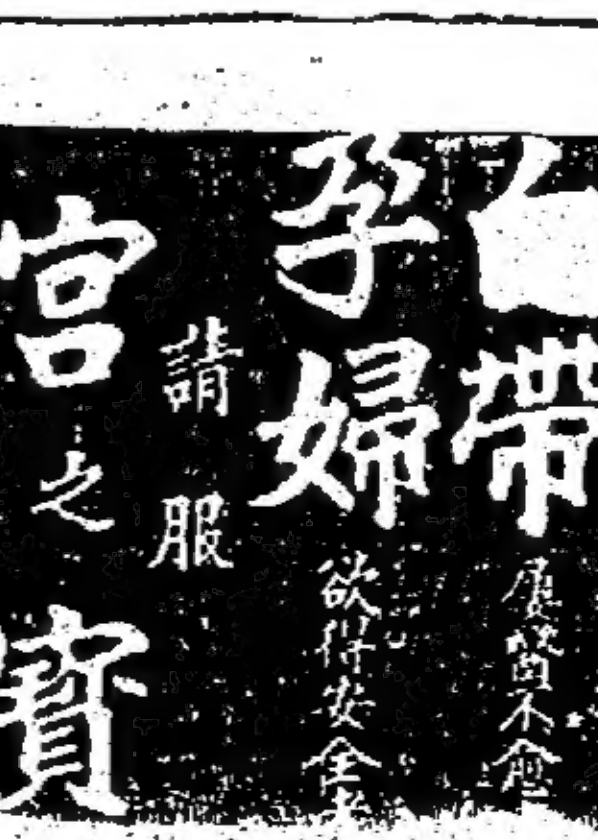 白帶
屢醫不愈
孕婦
欲得安全者
請服
宮之寶